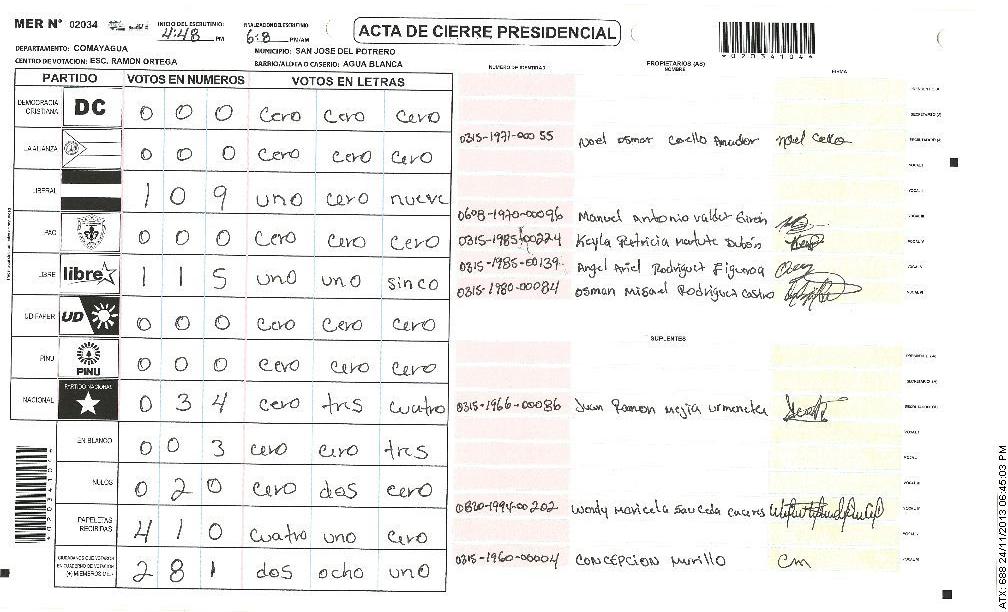 MER N° 02034
INICIO DEL ESCRUTINIO
4:48 PM
FINALIZACION DEL ESCRUTINIO
6:8 PM/AM
ACTA DE CIERRE PRESIDENCIAL
*02034104*
DEPARTAMENTO: COMAYAGUA
MUNICIPIO: SAN JOSE DEL POTRERO
CENTRO DE VOTACION: ESC. RAMON ORTEGA
BARRIO/ALDEA O CASERIO: AGUA BLANCA
PARTIDO VOTOS EN NUMEROS VOTOS EN LETRAS
DEMOCRACIA CRISTIANA DC 0 0 0 cero cero cero
LA ALIANZA 0 0 0 cero cero cero
LIBERAL 1 0 9 uno cero nueve
PAC 0 0 0 cero cero cero
LIBRE libre 1 1 5 uno uno sinco
UD FAPER UD 0 0 0 cero cero cero
PINU PINU 0 0 0 cero cero cero
NACIONAL PARTIDO NACIONAL 0 3 4 cero tres cuatro
EN BLANCO 0 0 3 cero cero tres
NULOS 0 2 0 cero dos cero
PAPELETAS RECIBIDAS 4 1 0 cuatro uno cero
CIUDADANOS QUE VOTARON EN CUADERNO DE VOTACION (+) MIEMBROS DE 2 8 1 dos ocho uno
NUMERO DE IDENTIDAD PROPIETARIOS (AS) NOMBRE FIRMA
0315-1971-00055 Noel osmar Coello Amador
0608-1970-00096 Manuel Antonio Valdez Giron
0315-1985-00224 Keyla Patricia Matute Dubón
0315-1985-00139 Angel Ariel Rodriguez Figueroa
0315-1980-00084 Osman Misael Rodriguez Castro
SUPLENTES
0315-1966-00086 Juan Ramon Mejia urmeneta
0820-1994-00202 Wendy Maricela Sauceda caceres
0315-1960-00004 CONCEPCION Murillo cm
ATX: 688 24/11/2013 06:45:03 PM